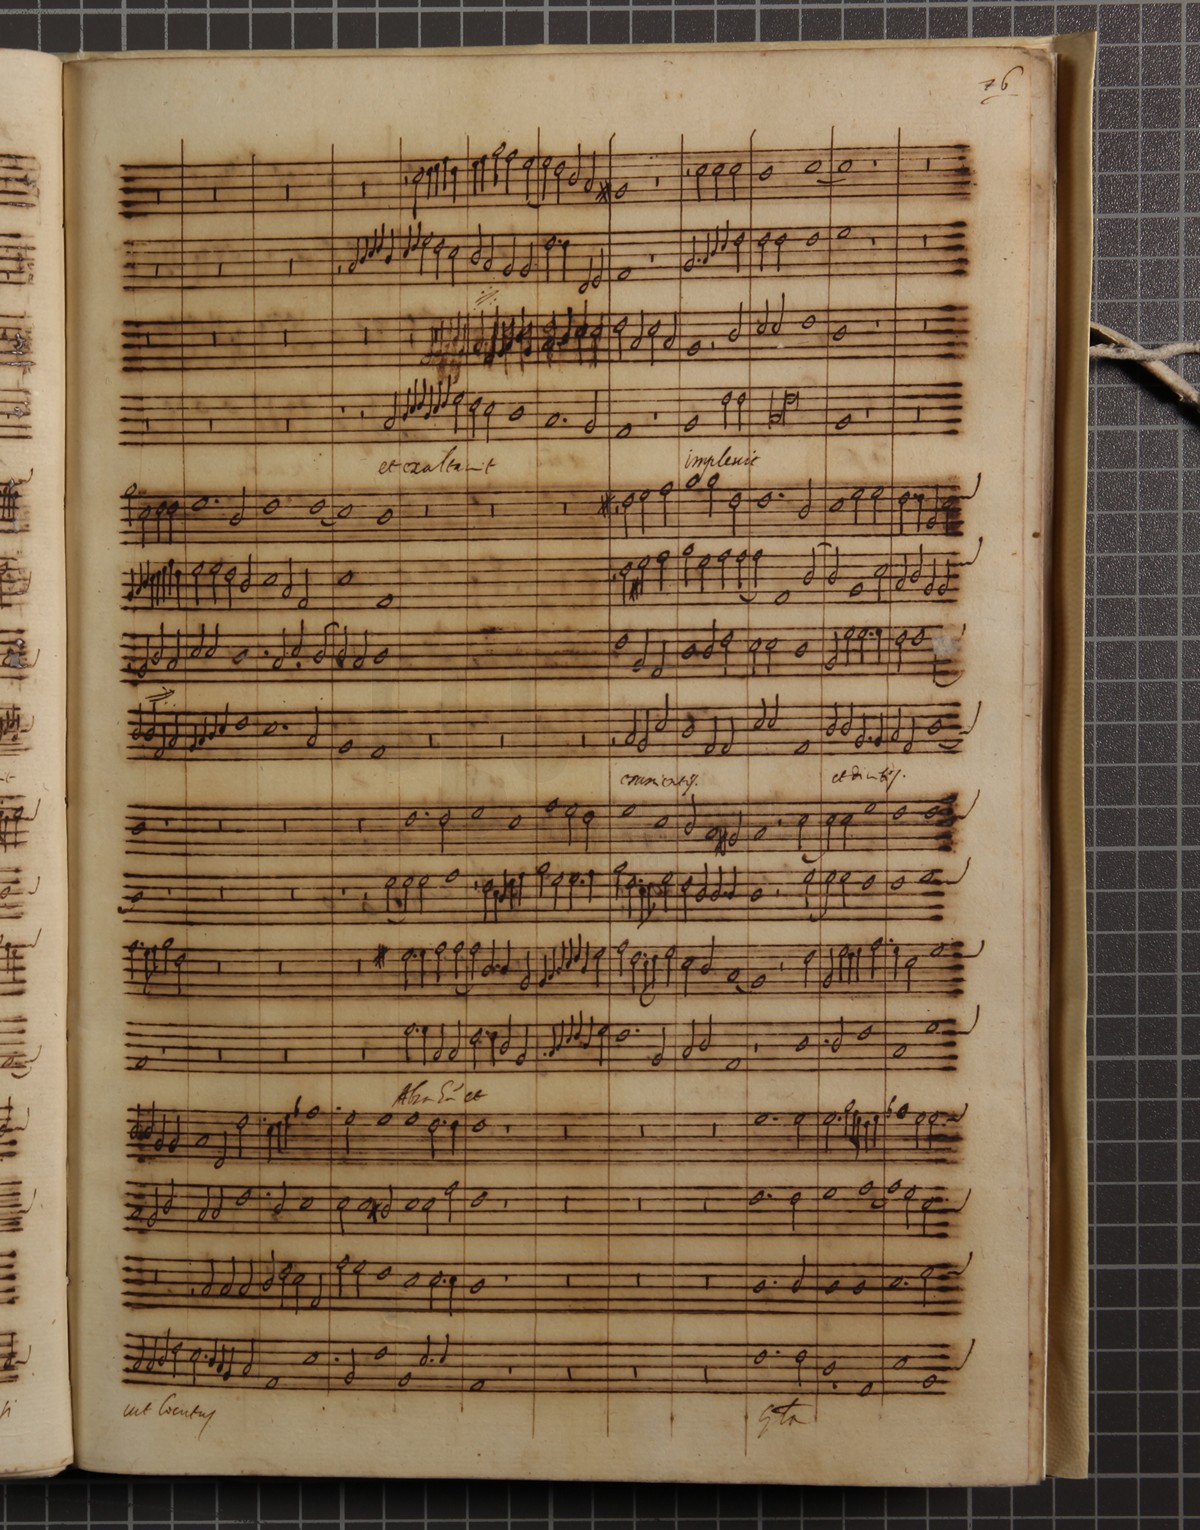 76
et exaltavit implevit
esurientes. et divites.
Abraham et
sicut locutus Gloria